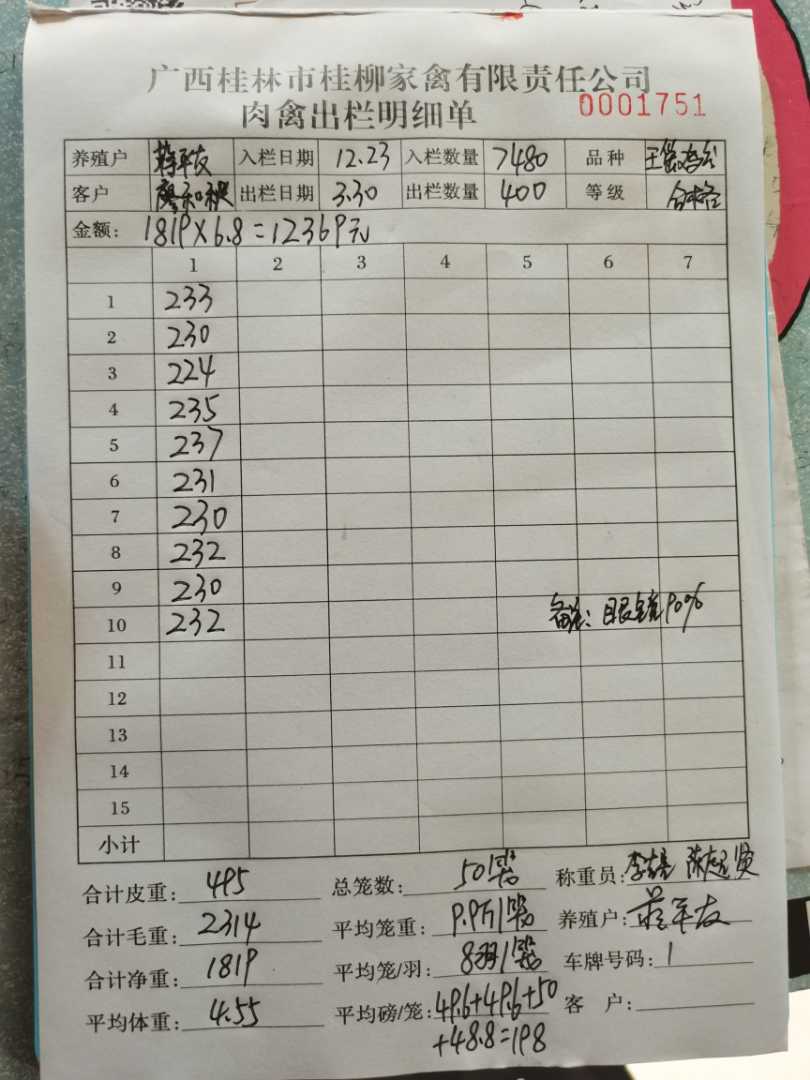 广西桂林市桂柳家禽有限责任公司
肉禽出栏明细单 0001751
养殖户 蒋军友 入栏日期 12.23 入栏数量 7480 品种
客户 出栏日期 3.30 出栏数量 400 等级 合格
金额: 1819×6.8=12369元
1 2 3 4 5 6 7
1 233
2 230
3 224
4 235
5 237
6 231
7 230
8 232
9 230
10 232
备注: 眼镜90%
11
12
13
14
15
小计
合计皮重: 495 总笼数: 50笼 称重员: 李
合计毛重: 2314 平均笼重: 9.9斤/笼 养殖户: 蒋军友
合计净重: 1819 平均笼/羽: 8羽/笼 车牌号码: 1
平均体重: 4.55 平均磅/笼: 49.6+49.6+50 客 户:
+48.8=198